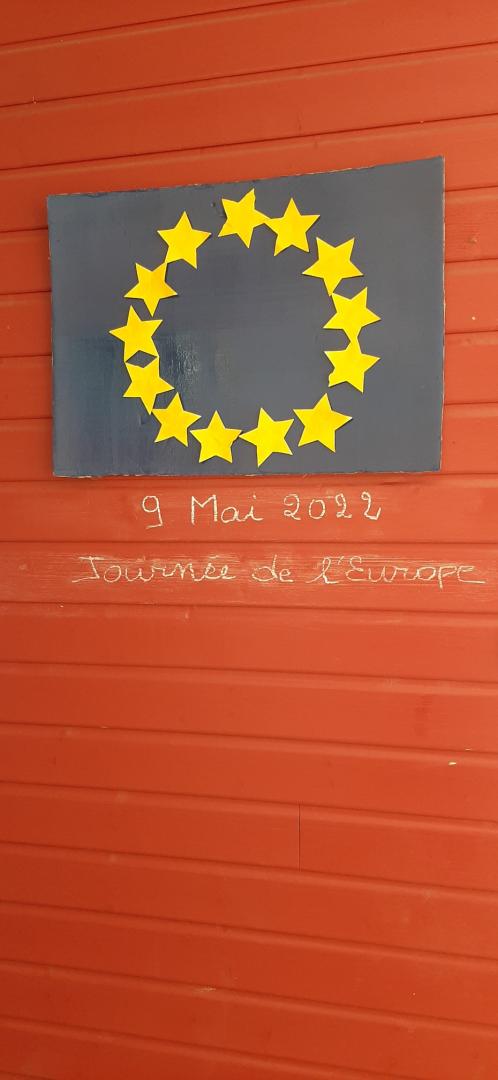 9 Mai 2022
Journée de l'Europe